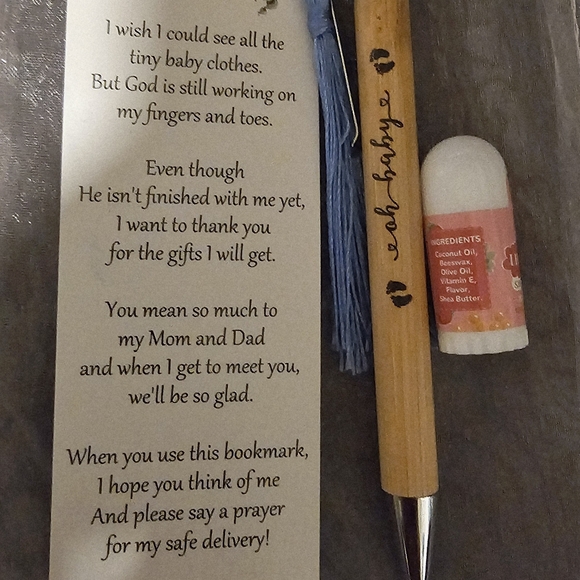 I wish I could see all the
tiny baby clothes.
But God is still working on
my fingers and toes.
Even though
He isn't finished with me yet,
I want to thank you
for the gifts I will get.
You mean so much to
my Mom and Dad
and when I get to meet you,
we'll be so glad.
When you use this bookmark,
I hope you think of me
And please say a prayer
for my safe delivery!
oh baby
INGREDIENTS
Coconut Oil,
Beeswax,
Olive Oil,
Vitamin E,
Flavor,
Shea Butter.